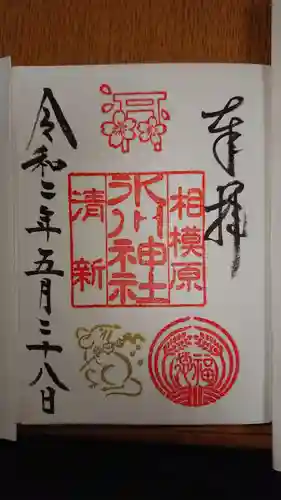 奉拝
相模原
氷川神社
清新
福
令和二年五月二十八日